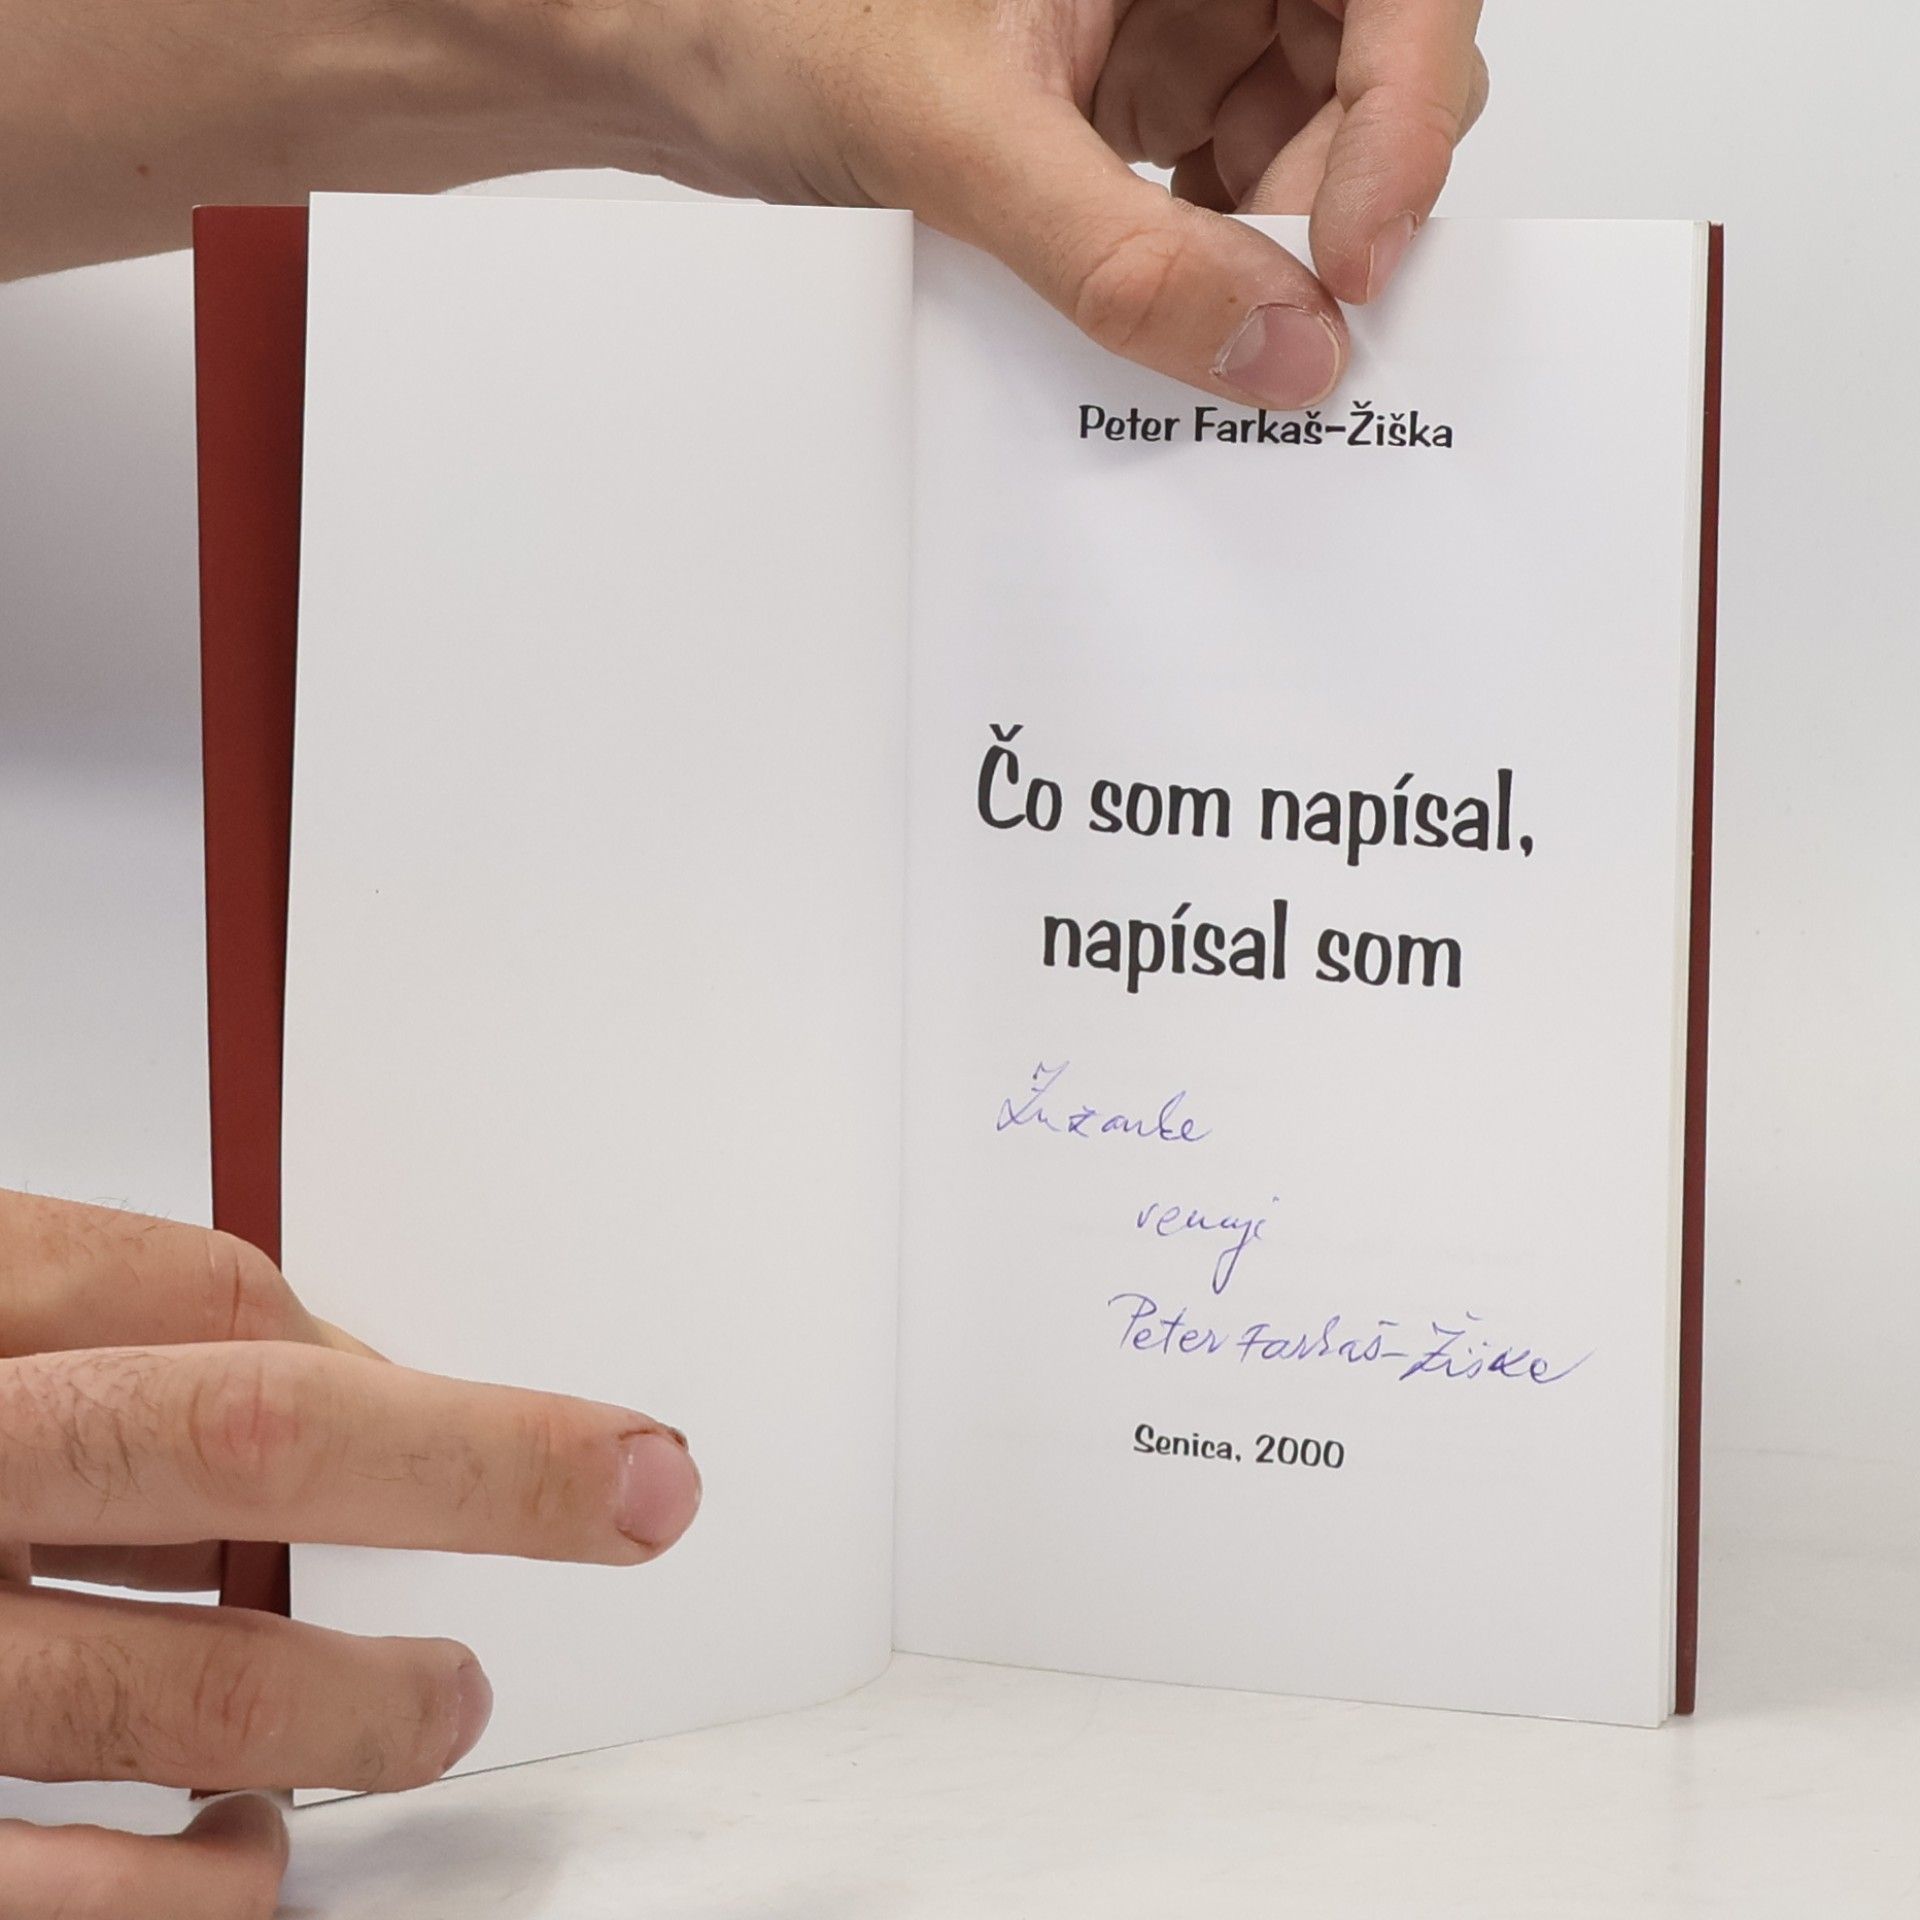 Peter Farkaš-Žiška
Čo som napísal,
napísal som
venuje
Peter Farkaš-Žiška
Senica, 2000